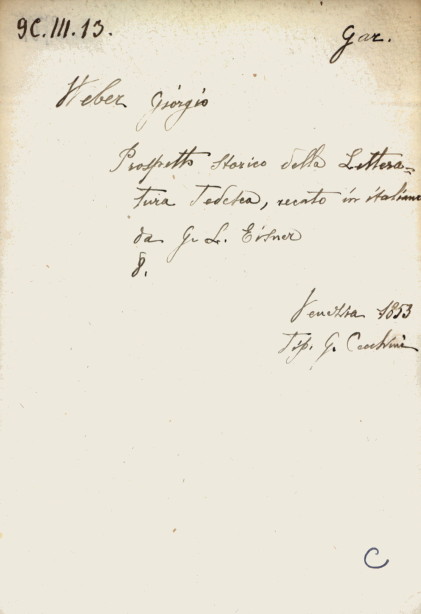 9C.III.13.
Gar.
Weber Giorgio
Prospetto storico della Lettera=
tura Tedesca, recato in italiano
da G. L. Eisner
8.
Venezia 1853
Tip. G. Cecchini
C